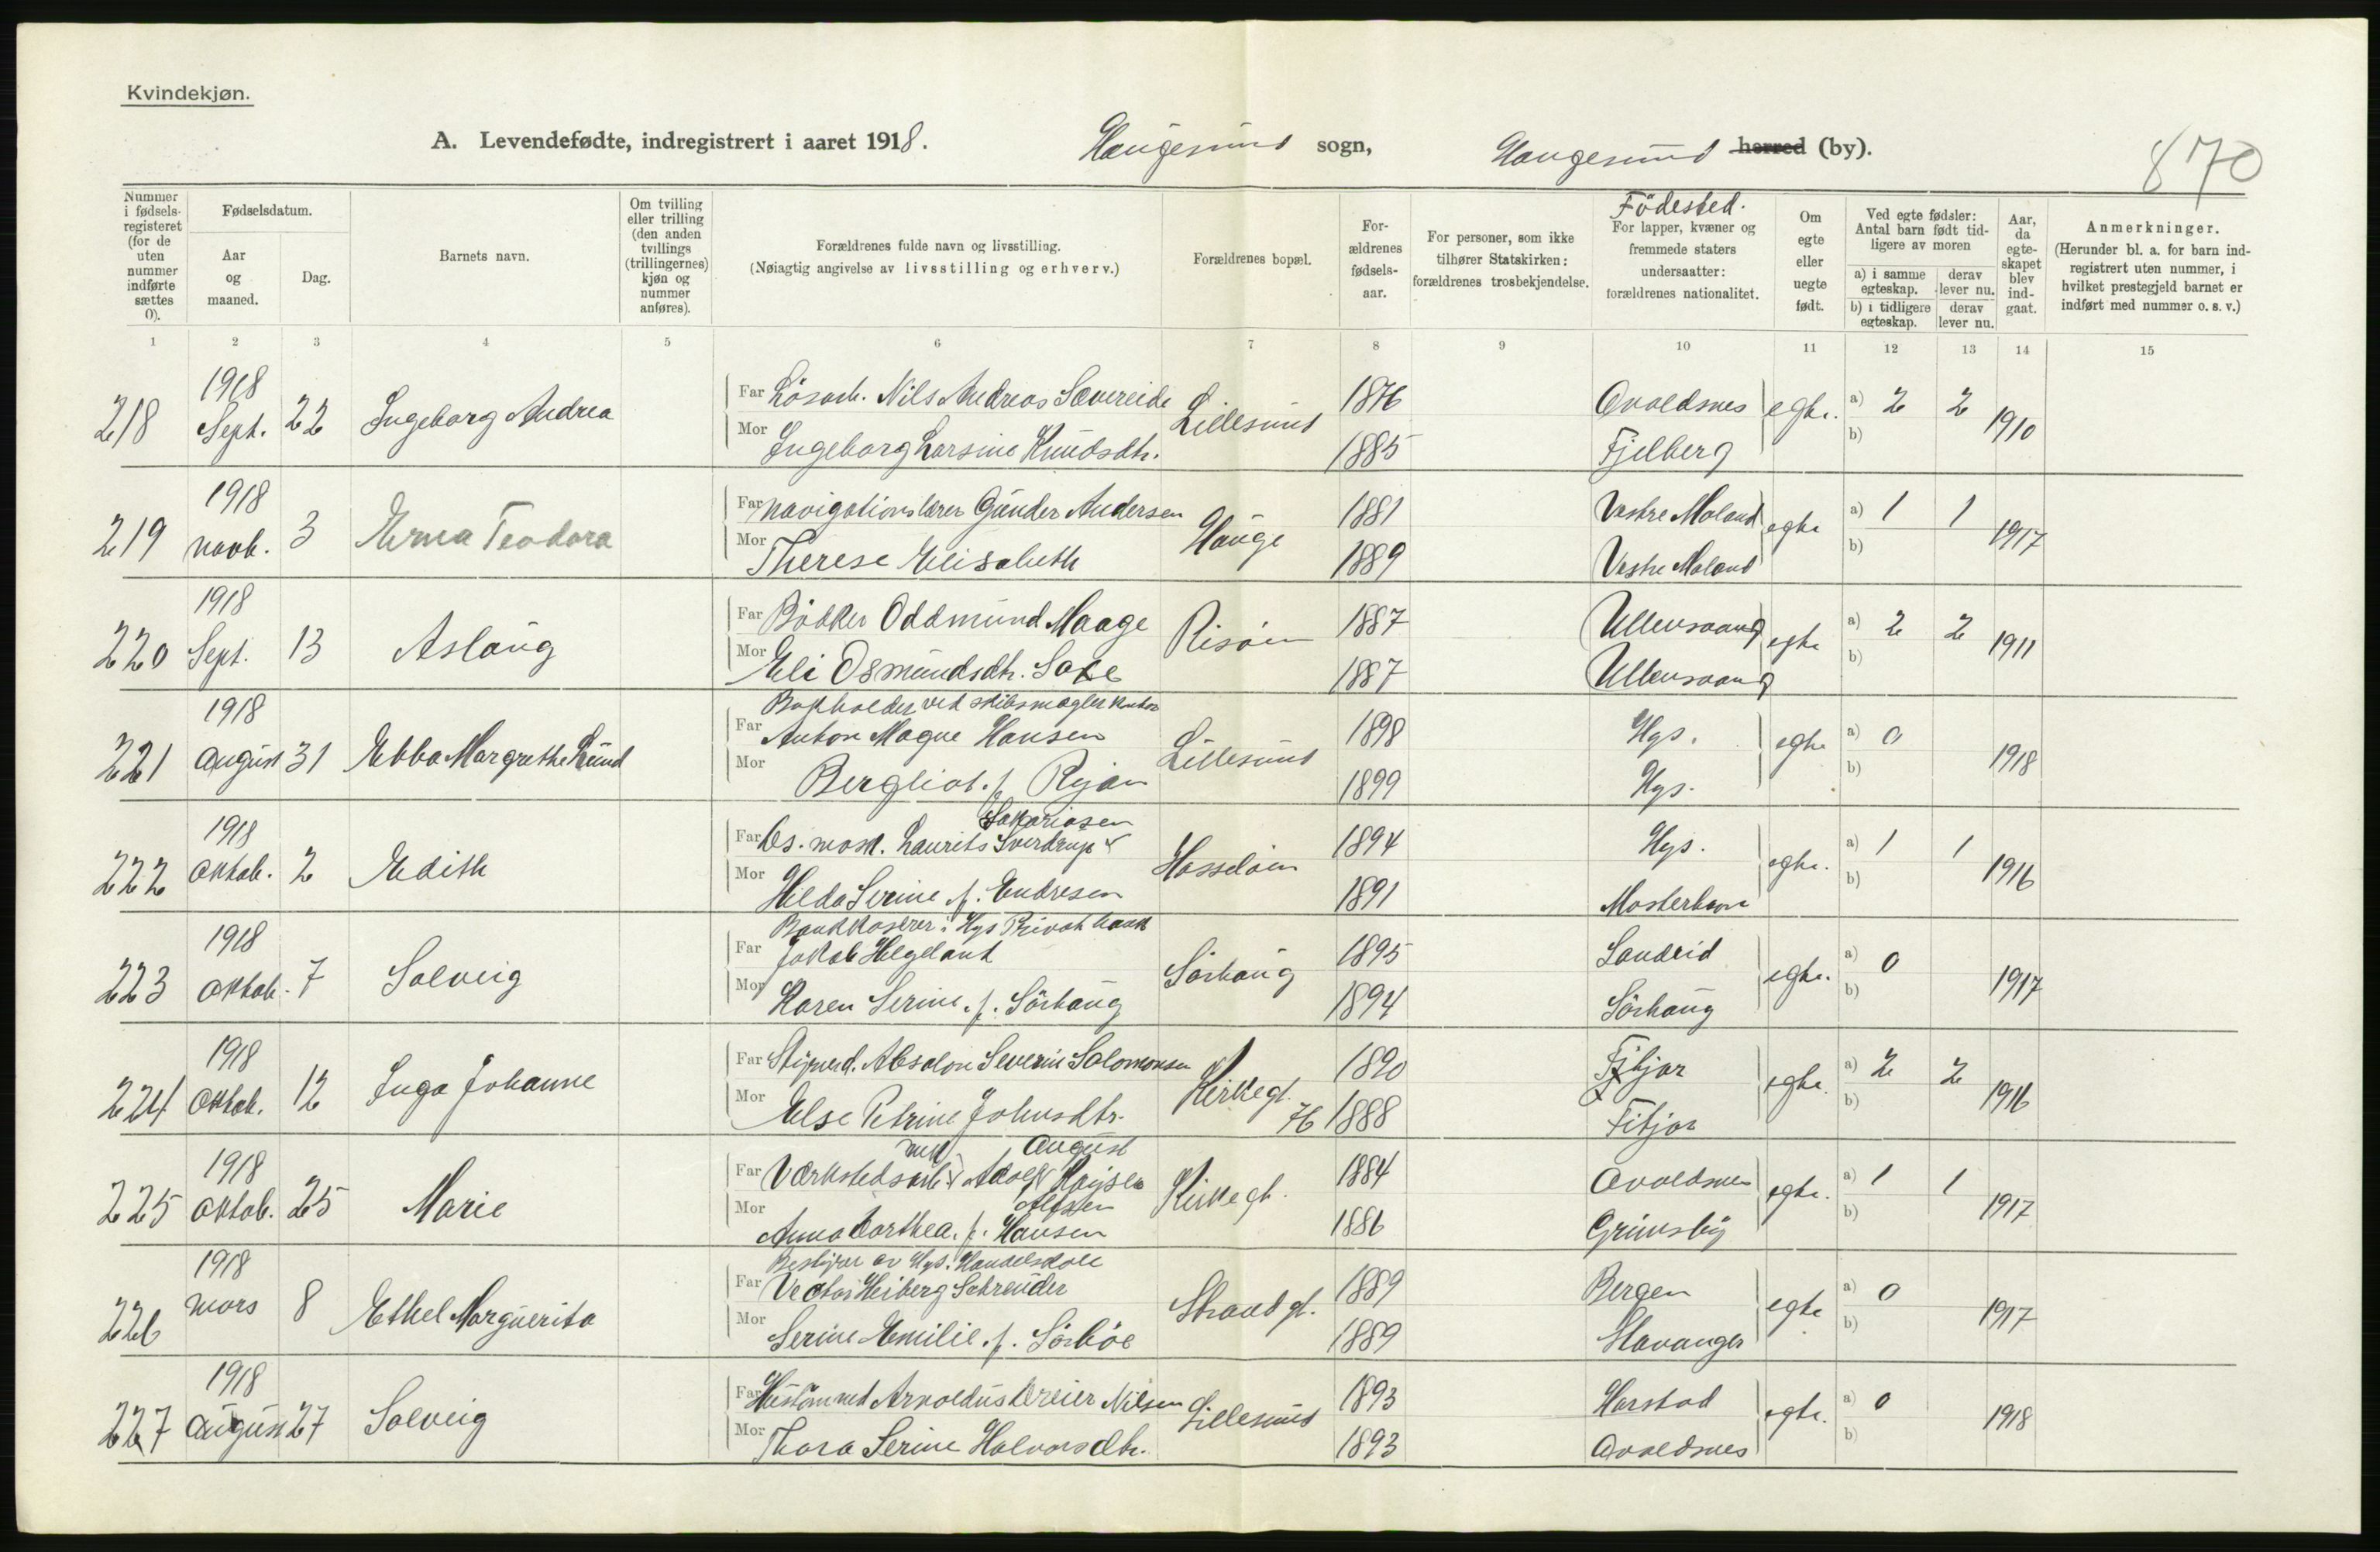 Kvindekjøn.
A. Levendefødte, indregistrert i aaret 1918. Haugesund sogn, Haugesund herred (by).
870
Nummer i fødsels-registeret (for de uten nummer indførte sættes 0).
Fødselsdatum.
Aar og maaned.
Dag.
Barnets navn.
Om tvilling eller trilling (den anden tvillings (trillingernes) kjøn og nummer anføres).
Forældrenes fulde navn og livsstilling.
(Nøiagtig angivelse av livsstilling og erhverv.)
Forældrenes bopæl.
For-ældrenes fødsels-aar.
For personer, som ikke tilhører Statskirken: forældrenes trosbekjendelse.
Födested.
For lapper, kvæner og fremmede staters undersaatter: forældrenes nationalitet.
Om egte eller uegte født.
Ved egte fødsler: Antal barn født tid-ligere av moren
a) i samme egteskap.
derav lever nu.
b) i tidligere egteskap.
derav lever nu.
Aar, da egte-skapet blev ind-gaat.
Anmerkninger.
(Herunder bl. a. for barn ind-registrert uten nummer, i hvilket prestegjeld barnet er indført med nummer o. s. v.)
1 2 3 4 5 6 7 8 9 10 11 12 13 14 15
218 1918 Sept. 22 Ingeborg Andrea
Far Lösarb. Nils Andreas Sævereide Lillesund 1876 Avaldsnes egte. a) 2 2 1910
Mor Ingeborg Larsine Knudsdtr. 1885 Fjelberg b)
219 1918 novb. 3 Erna Teodora
Far navigationslærer Gunder Andersen Hauge 1881 Vestre Moland egte a) 1 1 1917
Mor Therese Elisabeth 1889 Vestre Moland b)
220 1918 Sept. 13 Aslaug
Far Bödker Oddmund Maage Risöen 1887 Ullensvang egte a) 2 2 1911
Mor Eli Osmundsdtr. Saxe 1887 Ullensvang b)
221 1918 August 31 Ebba Margrethe Lund
Bokholder ved skibsmæglerkontor
Far Anton Magne Hansen Lillesund 1898 Hgs. egte a) 0 1918
Mor Bergliot. f. Ryan 1899 Hgs. b)
222 1918 Oktob. 2 Edith
Sakariasen
Far Os. mask. Laurits Sverdrup Hasseløen 1894 Hgs. egte. a) 1 1 1916
Mor Hilda Serine f. Endresen 1891 Mosterhavn b)
223 1918 Oktob. 7 Solveig
Bankkaserer i Hgs Privatbank
Far Jakob Helgeland Sörhaug 1895 Sandeid egte. a) 0 1917
Mor Karen Serine. f. Sörhaug 1894 Sörhaug b)
224 1918 Oktob. 12 Inga Johanne
Far Styrmd. Absalon Severin Salomonsen Kirkegt. 76 1890 Fitjar egte. a) 2 2 1916
Mor Else Petrine Johnsdtr. 1888 Fitjar b)
225 1918 Oktob. 25 Marie
mek August
Far Værkstedsarb. Adolf Kaysen Kirkegt. 1884 Avaldsnes egte. a) 1 1 1917
Mor Anna Dorthea. f. Hansen 1886 Grimsby b)
226 1918 mars 8 Ethel Marguerita
Bestyrer av Hgs. Handelskole
Far Vector Heiberg Schreuder Strandgt. 1889 Bergen egte a) 0 1917
Mor Serine Emilie. f. Sörböe 1889 Stavanger b)
227 1918 August 27 Solveig
Far Hustömmed Arnoldus Dreier Nilsen Lillesund 1893 Harstad egte. a) 0 1918
Mor Thora Serine Halvorsdtr. 1893 Avaldsnes b)